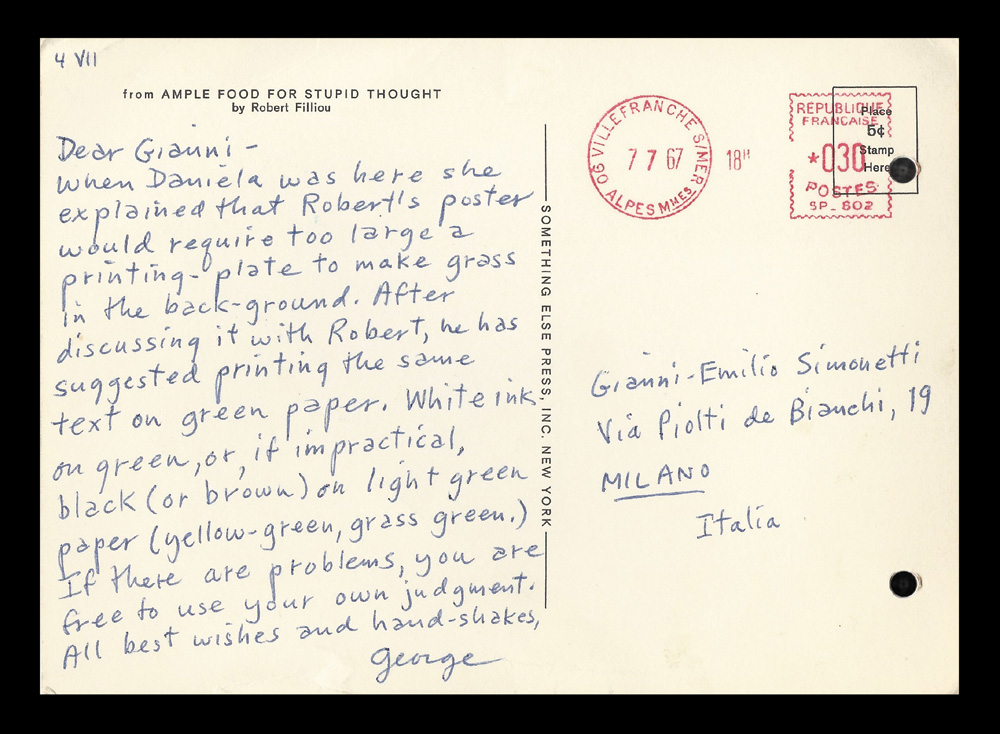 4 VII
from AMPLE FOOD FOR STUPID THOUGHT
by Robert Filliou
Dear Gianni -
When Daniela was here she
explained that Robert's poster
would require too large a
printing-plate to make grass
in the back-ground. After
discussing it with Robert, he has
suggested printing the same
text on green paper. White ink
on green, or, if impractical,
black (or brown) on light green
paper (yellow-green, grass green.)
If there are problems, you are
free to use your own judgment.
All best wishes and hand-shakes,
George
SOMETHING ELSE PRESS, INC. NEW YORK
06 VILLEFRANCHE S/MER
7 7 67
ALPES MMES
18H
REPUBLIQUE
FRANCAISE
*030
POSTES
SP_ 602
Place
5¢
Stamp
Here
Gianni-Emilio Simonetti
Via Piolti de Bianchi, 19
MILANO
Italia